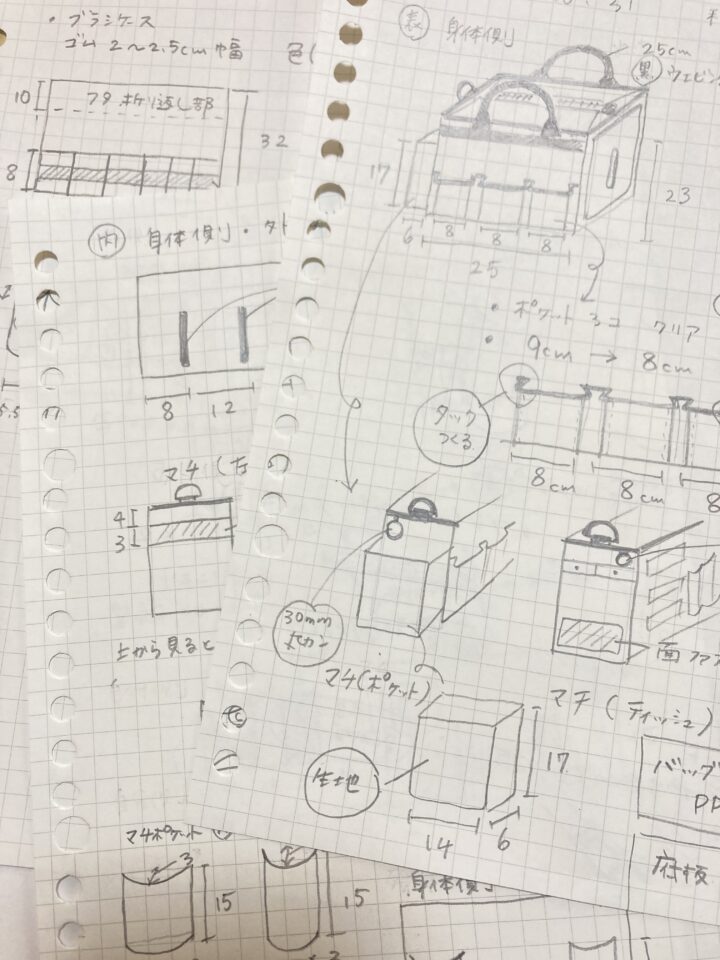 ・ブラシケース
ゴム 2〜2.5cm 幅
10
フタ 折り返し部
32
8
表 身体側
25cm
黒
17
23
6
8
8
8
25
・ポケット 3コ クリア
・9cm → 8cm
タック
つくる
8cm
8cm
8
内 身体側・
8
12
マチ
4
3
上から見ると
30mm
マチ(ポケット)
面ファ
マチ(ティッシュ)
生地
17
14
6
バッグ
PP
底板
マチポケット
3
15
15
身体側